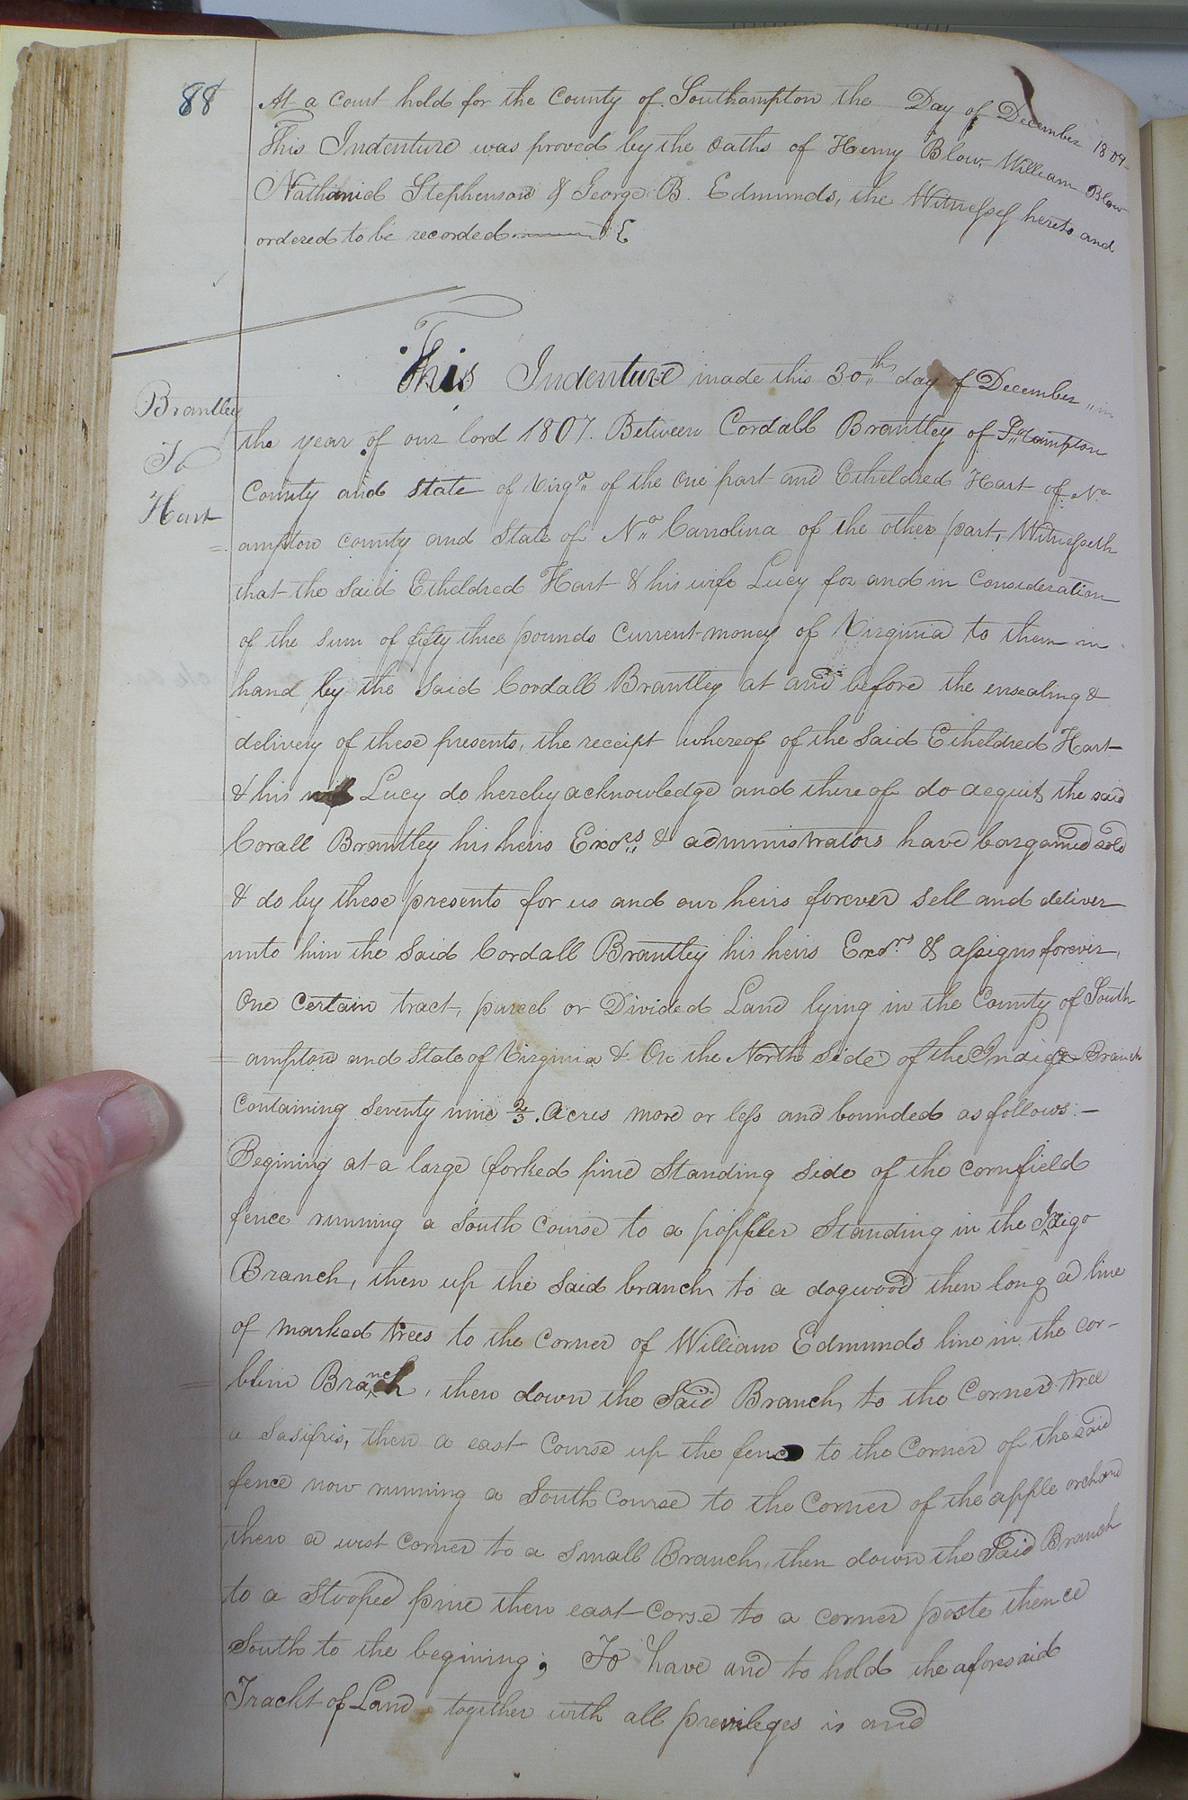 88
At a Court held for the County of Southampton the Day of December 1807
This Indenture was proved by the oaths of Henry Blow, William Blow
Nathaniel Stephenson & George B. Edmunds, the Witnesses hereto and
ordered to be recorded
Brantley
To
Hart
This Indenture made this 30th day of December in
the year of our lord 1807. Between Cordall Brantley of S Hampton
County and State of Virga. of the One part and Etheldred Hart of No
=ampton County and State of No Carrolina of the other part, Witnesseth
that the Said Etheldred Hart & his wife Lucy for and in Consideration
of the Sum of fifty three pounds Current money of Virginia to them in
hand by the Said Cordall Brantley at and before the ensealing &
delivery of these presents, the receipt whereof of the Said Etheldred Hart
& his wife Lucy do hereby acknowledge and thereof do acquit the said
Corall Brantley his heirs Exors & administrators have bargained sold
& do by these presents for us and our heirs forever sell and deliver
unto him the Said Cordall Brantley his heirs Exors & assigns forever
One Certain tract, parcel or Divided Land lying in the County of South
=ampton and State of Virginia & On the North Side of the Indigo Branch
Containing Seventy nine 2/3 Acres more or less and bounded as follows:—
Begining at a large forked pine Standing Side of the cornfield
fence running a South Course to a poppler Standing in the Idigo
Branch, then up the Said branch to a dogwood then long a line
of marked trees to the Corner of William Edmunds line in the cor-
=blin Branch, then down the Said Branch to the Corner tree
a Sasifris, then a east Course up the fence to the Corner of the said
fence now running a South Course to the Corner of the apple orchard
then a west corner to a Small Branch, then down the Said Branch
to a Stooped pine then east Corse to a corner poste thence
South to the begining; To have and to hold the aforesaid
Trackt of Land together with all previleges is and